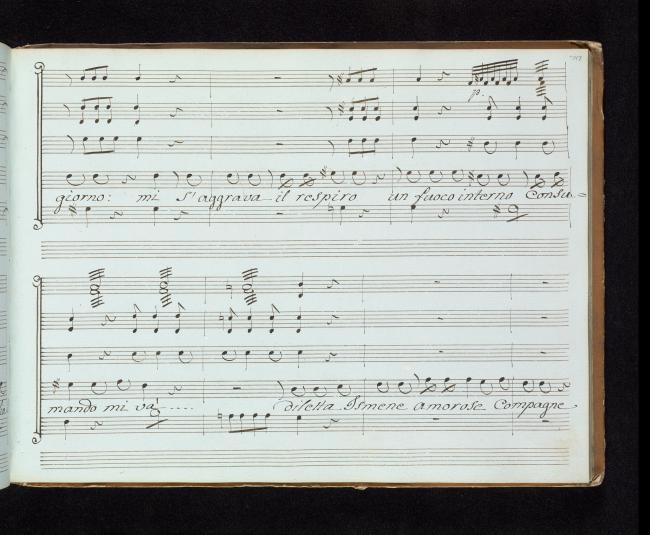 p.
giorno: mi s'aggrava il respiro un fuoco interno Consu=
mando mi và.....  diletta Ismene amorose Compagne